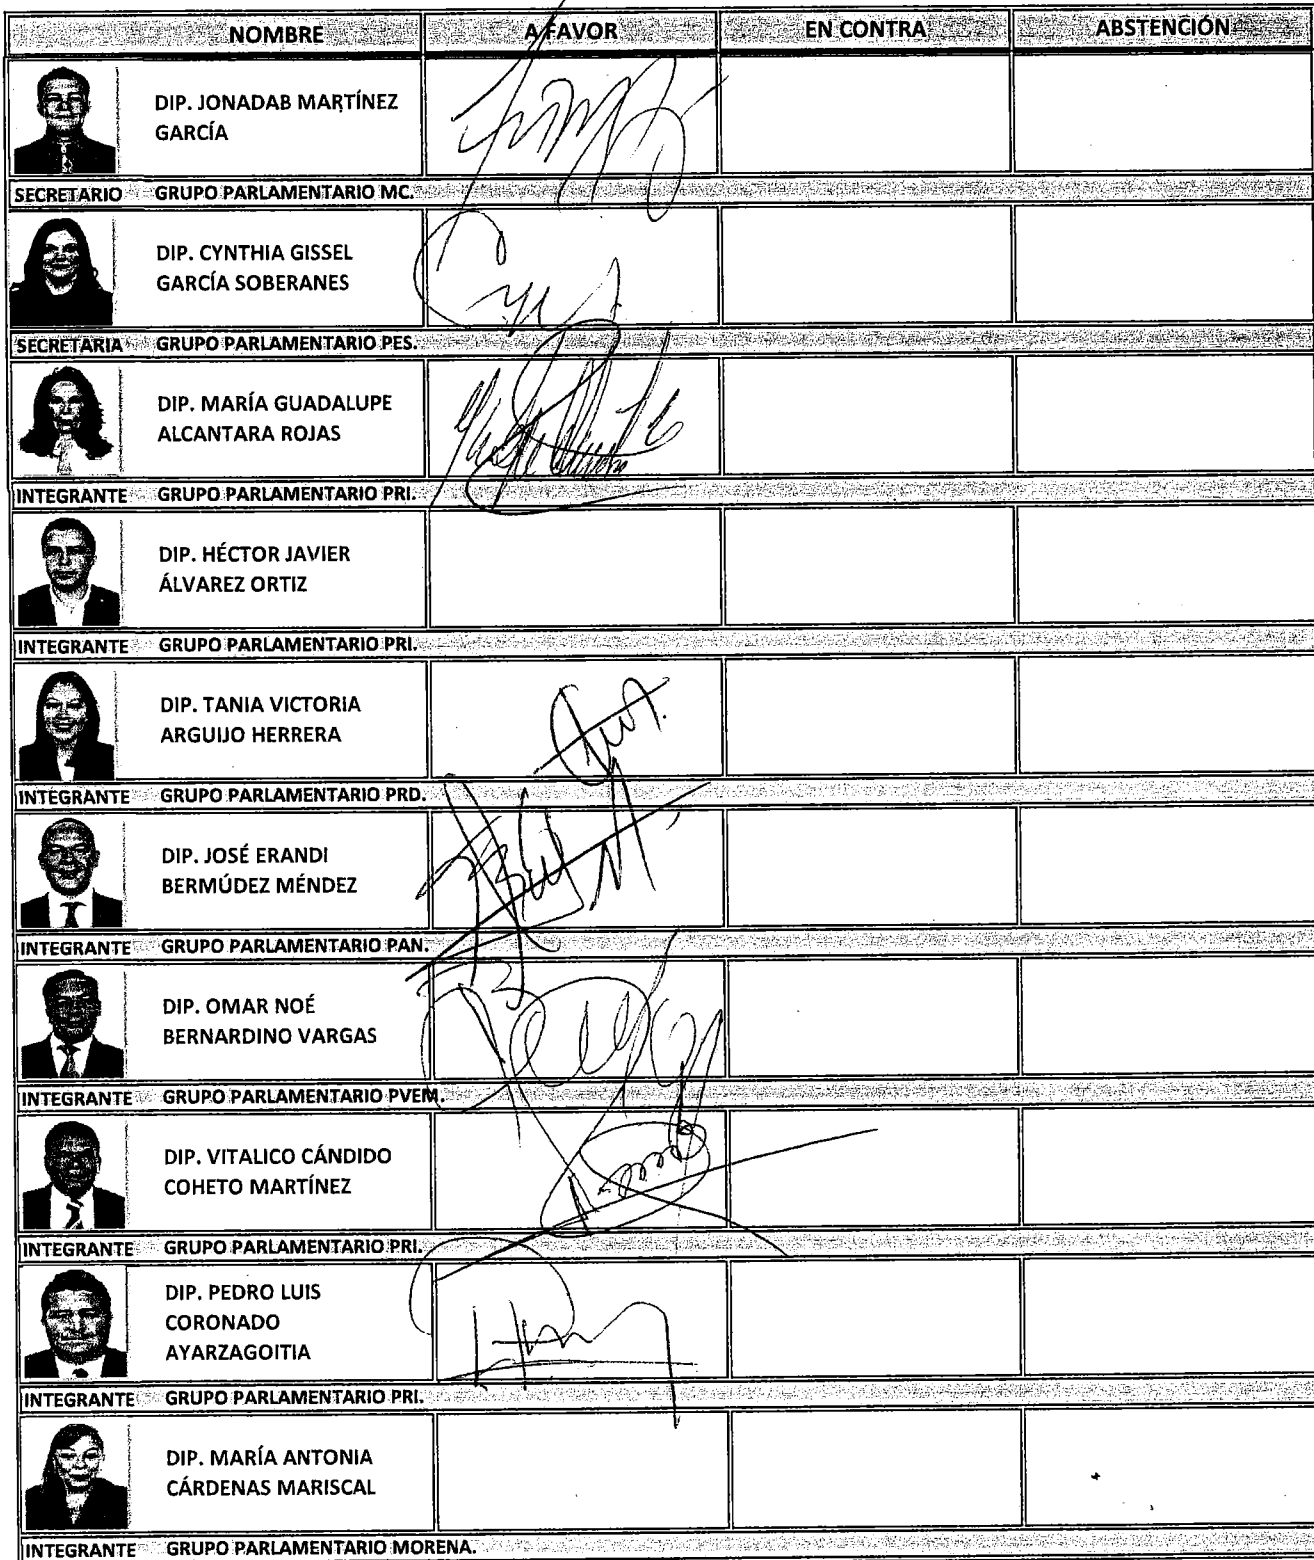 NOMBRE A FAVOR EN CONTRA ABSTENCIÓN
DIP. JONADAB MARTÍNEZ
GARCÍA
SECRETARIO GRUPO PARLAMENTARIO MC.
DIP. CYNTHIA GISSEL
GARCÍA SOBERANES
SECRETARIA GRUPO PARLAMENTARIO PES.
DIP. MARÍA GUADALUPE
ALCANTARA ROJAS
INTEGRANTE GRUPO PARLAMENTARIO PRI.
DIP. HÉCTOR JAVIER
ÁLVAREZ ORTIZ
INTEGRANTE GRUPO PARLAMENTARIO PRI.
DIP. TANIA VICTORIA
ARGUIJO HERRERA
INTEGRANTE GRUPO PARLAMENTARIO PRD.
DIP. JOSÉ ERANDI
BERMÚDEZ MÉNDEZ
INTEGRANTE GRUPO PARLAMENTARIO PAN.
DIP. OMAR NOÉ
BERNARDINO VARGAS
INTEGRANTE GRUPO PARLAMENTARIO PVEM.
DIP. VITALICO CÁNDIDO
COHETO MARTÍNEZ
INTEGRANTE GRUPO PARLAMENTARIO PRI.
DIP. PEDRO LUIS
CORONADO
AYARZAGOITIA
INTEGRANTE GRUPO PARLAMENTARIO PRI.
DIP. MARÍA ANTONIA
CÁRDENAS MARISCAL
INTEGRANTE GRUPO PARLAMENTARIO MORENA.